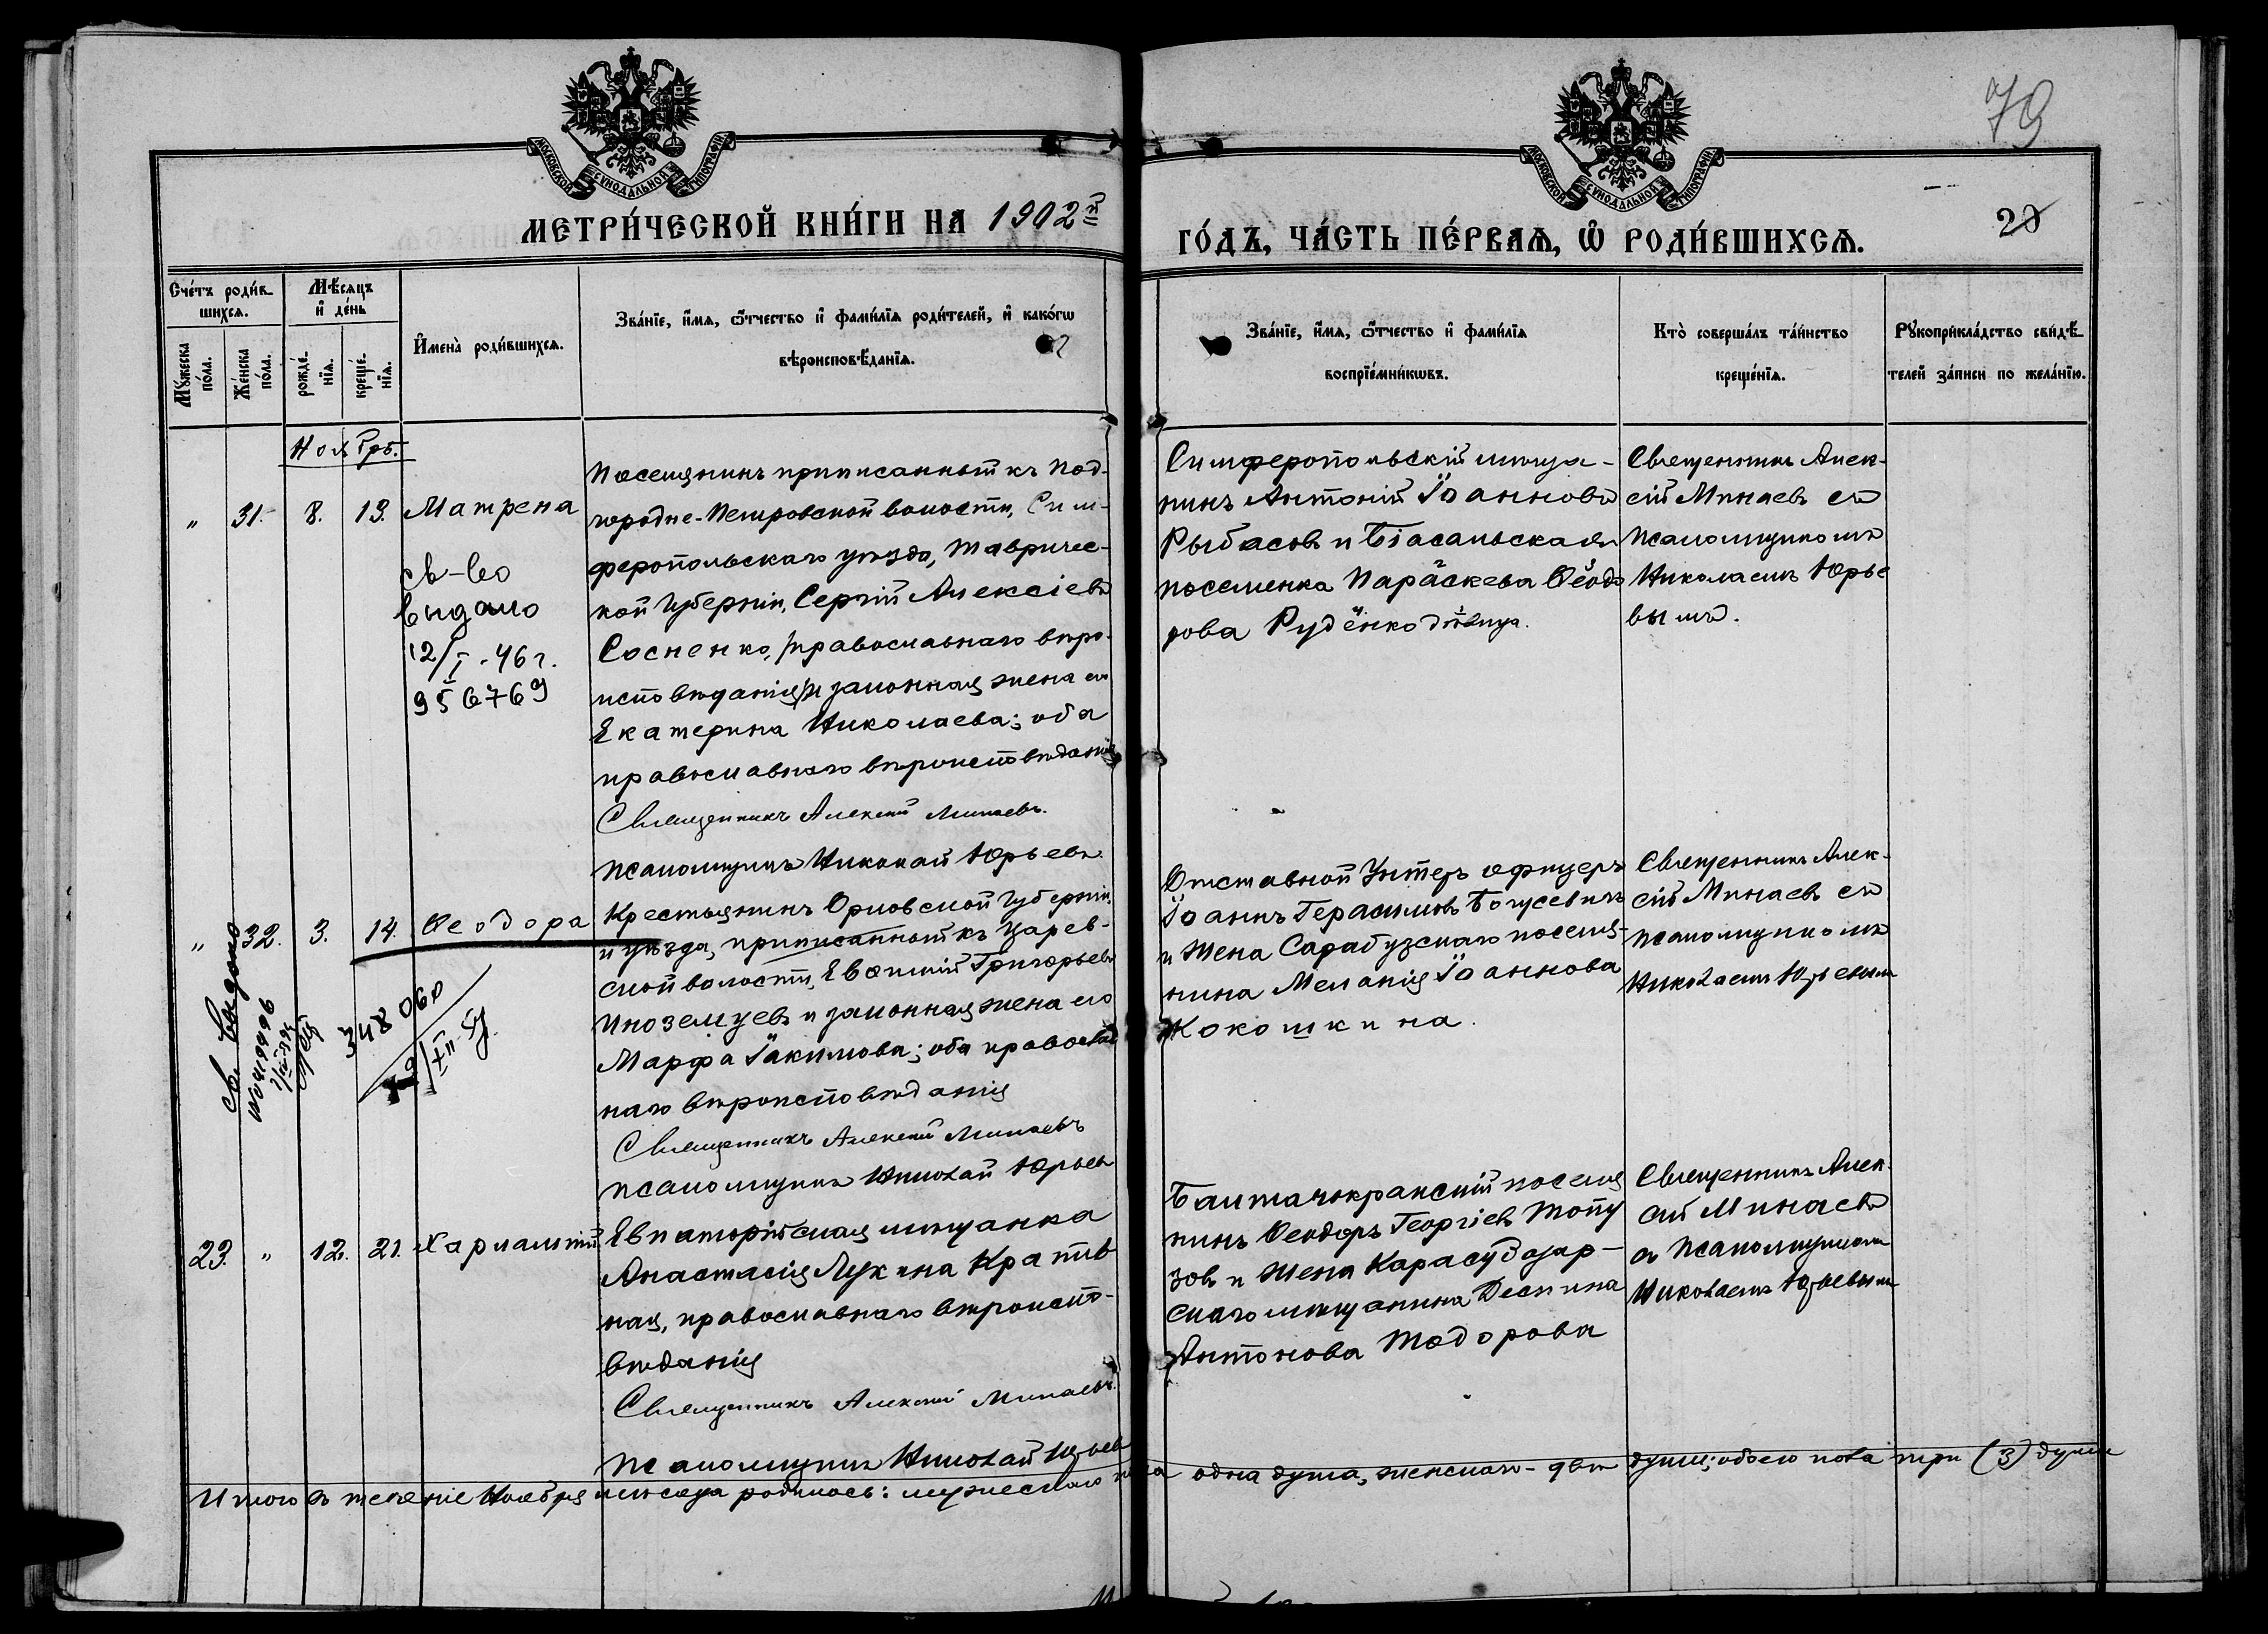 79
МОСКОВСКОЙ СУНОДАЛЬНОЙ ТИПОГРАФІИ.
МОСКОВСКОЙ СУНОДАЛЬНОЙ ТИПОГРАФІИ.
МЕТРИ́ЧЕСКОЙ КНИ́ГИ НА 1902й
ГО́ДЪ, ЧА́СТЬ ПЕ́РВАЯ, Ѽ РОДИ́ВШИХСЯ.
20
Сче́тъ роди́в-
шихся.
Мꙋжеска
по́ла.
Же́нска
по́ла.
Мѣ́сяцъ
и҆ де́нь
рожде́-
нїя.
креще́-
нїя.
И҆мена̀ роди́вшихся.
Зва́нїе, и҆́мя, ѻ҆́тчество и҆ фами́лїя роди́телей, и҆ како́гѡ
вѣроисповѣ́данїя.
Зва́нїе, и҆́мя, ѻ҆́тчество и҆ фами́лїя
воспрїе́мникѡвъ.
Кто̀ соверша́лъ та́инство
креще́нїя.
Рꙋкоприкла́дство свидѣ́-
телей за́писи по жела́нїю.
Ноябрь.
" 31. 8. 13. Матрена
св-во
выдано
12/I-46 г.
956769
Поселянинъ приписанный къ Под-
городне-Петровской волости, Сим-
феропольскаго уѣзда, Тавричес-
кой Губерніи, Сергій Алексіевъ
Сосненко, /православнаго вѣро-
исповѣданія/ и законная жена его
Екатерина Николаева; оба
православнаго вѣроисповѣданія
Священникъ Алексій Минаевъ.
Псаломщикъ Николай Юрьевъ
Симферопольскій мѣща-
нинъ Антоній Іоанновъ
Рыбасовъ и
поселенка Параскева Ѳеодо
рова Руденко дѣвица.
Священникъ Алек-
сій Минаевъ съ
псаломщикомъ
Николаемъ Юрье
вымъ.
" 32. 3. 14. Ѳеодора
Св. выдано
348060
Крестьянинъ Орловской Губерніи,
и уѣзда, приписанный къ Царев-
ской волости, Евѳимій Григорьевъ
Иноземцевъ и законная жена его
Марфа Іакимова; оба православ
наго вѣроисповѣданія
Священникъ Алексій Минаевъ
псаломщикъ Николай Юрьевъ
Отставной Унтеръ офицеръ
Іоаннъ Герасимовъ Богусевичъ
и жена Сарабузскаго поселя-
нина Меланія Іоаннова
Кокошкина.
Священникъ Алек-
сій Минаевъ съ
псаломщикомъ
Николаемъ Юрьевымъ
23. " 12. 21. Харлампій
Евпаторійская мѣщанка
Анастасія Лукина Кратив
ная, православнаго вѣроиспо-
вѣданія
Священникъ Алексій Минаевъ.
Псаломщикъ Николай Юрьевъ
Балтачокракскій поселя
нинъ Ѳеодоръ Георгіевъ Топу
зовъ и жена Карасубазар-
скаго мѣщанина Деспина
Антонова Тодорова
Священникъ Алек-
сій Минаевъ
съ псаломщикомъ
Николаемъ Юрьевымъ
Итого въ теченіе Ноября мѣсяца родилось: мужескаго пола одна душа, женскаго - двѣ души; обоего пола три (3) души